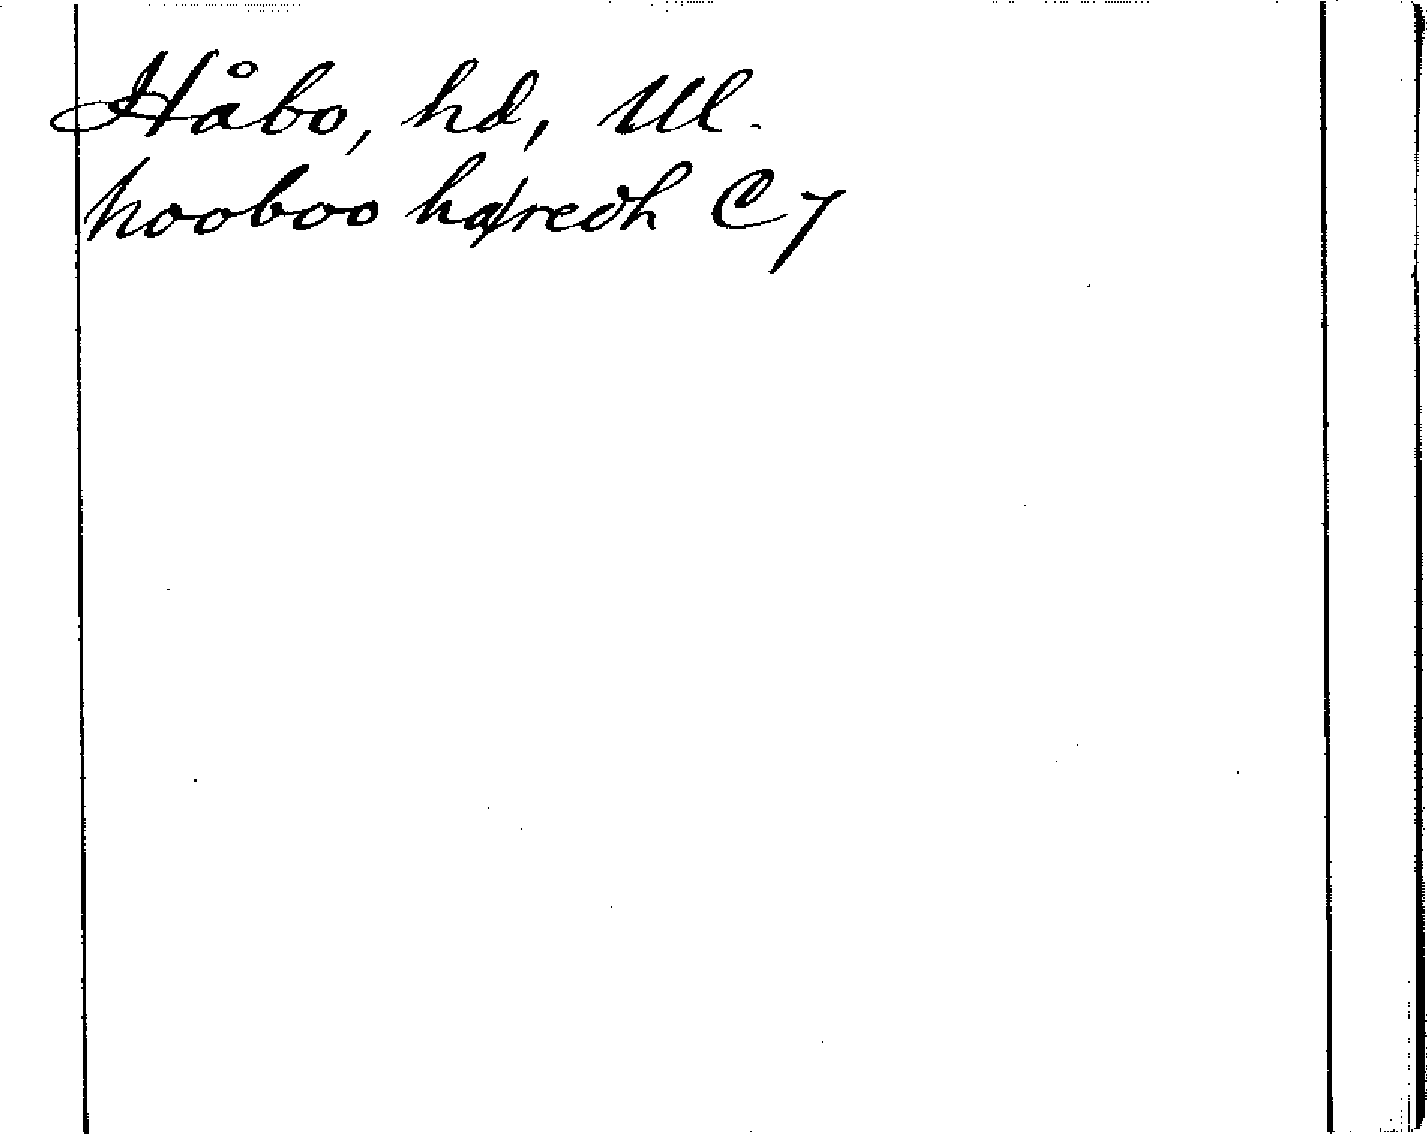 Håbo, hd, Ul.
hooboo ha/redh C7